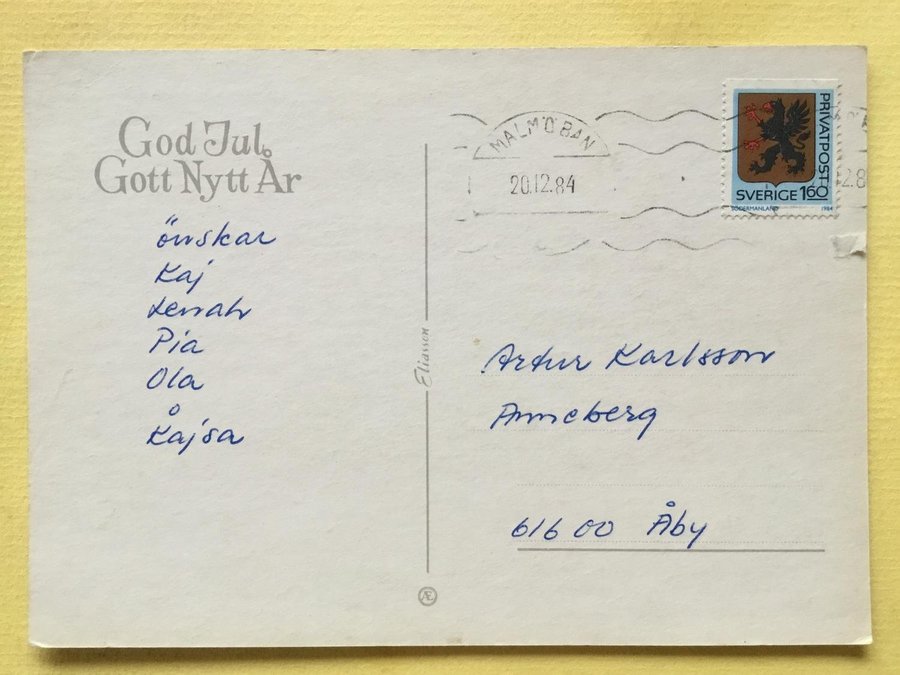 God Jul
Gott Nytt År
önskar
Kaj
Lenah
Pia
Ola
o
Kajsa
Eliasson
Æ
MALMÖ BAN
20.12.84
PRIVATPOST
SVERIGE 160
SÖDERMANLAND 1984
Artur Karlsson
Anneberg
616 00 Åby